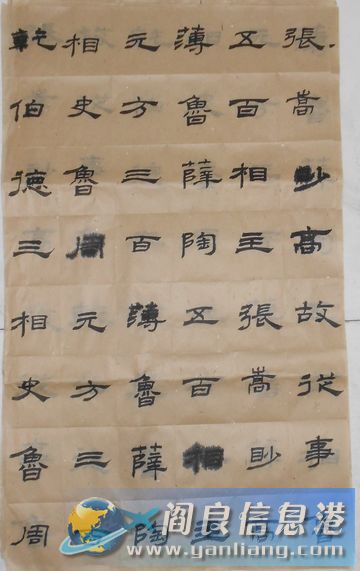 張嵩眇高故從事魯
五百相主張嵩眇高
薄魯薛陶五百相主
元方三百薄魯薛陶
相史魯周元方三百
乾伯德三相史魯周
阎良信息港
www.yanliang.com